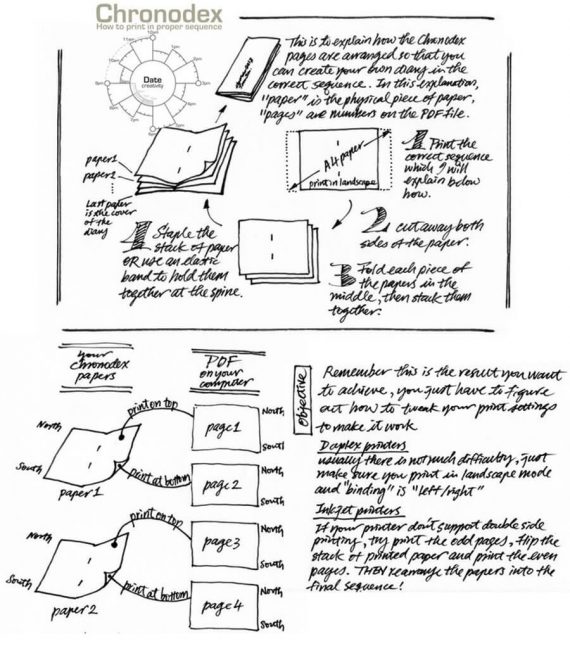 Chronodex
How to print in proper sequence
Date
creativity
This is to explain how the Chronodex
pages are arranged so that you
can create your own diary in the
correct sequence. In this explanation,
"paper" is the physical piece of paper,
"pages" are numbers on the PDF file.
paper1
paper2
Last paper
is the cover
of the
diary
A4 paper
print in landscape
1 Print the
correct sequence
which I will
explain below
how.
2 cut away both
sides of the paper.
3 Fold each piece of
the papers in the
middle, then stack them
together.
Staple the
stack of paper
OR use an elastic
band to hold them
together at the spine.
your
chronodex
papers
PDF
on your
computer
North
South
paper1
print on top
print at bottom
page1
North
South
page2
North
South
North
South
paper2
print on top
print at bottom
page3
North
South
page4
North
South
Objective
Remember this is the result you want
to achieve, you just have to figure
out how to tweak your print settings
to make it work
Duplex printers
usually there is not much difficulty, just
make sure you print in landscape mode
and "binding" is "left/right"
Inkjet printers
If your printer don't support double side
printing, try print the odd pages, flip the
stack of printed paper and print the even
pages. THEN rearrange the papers into the
final sequence!